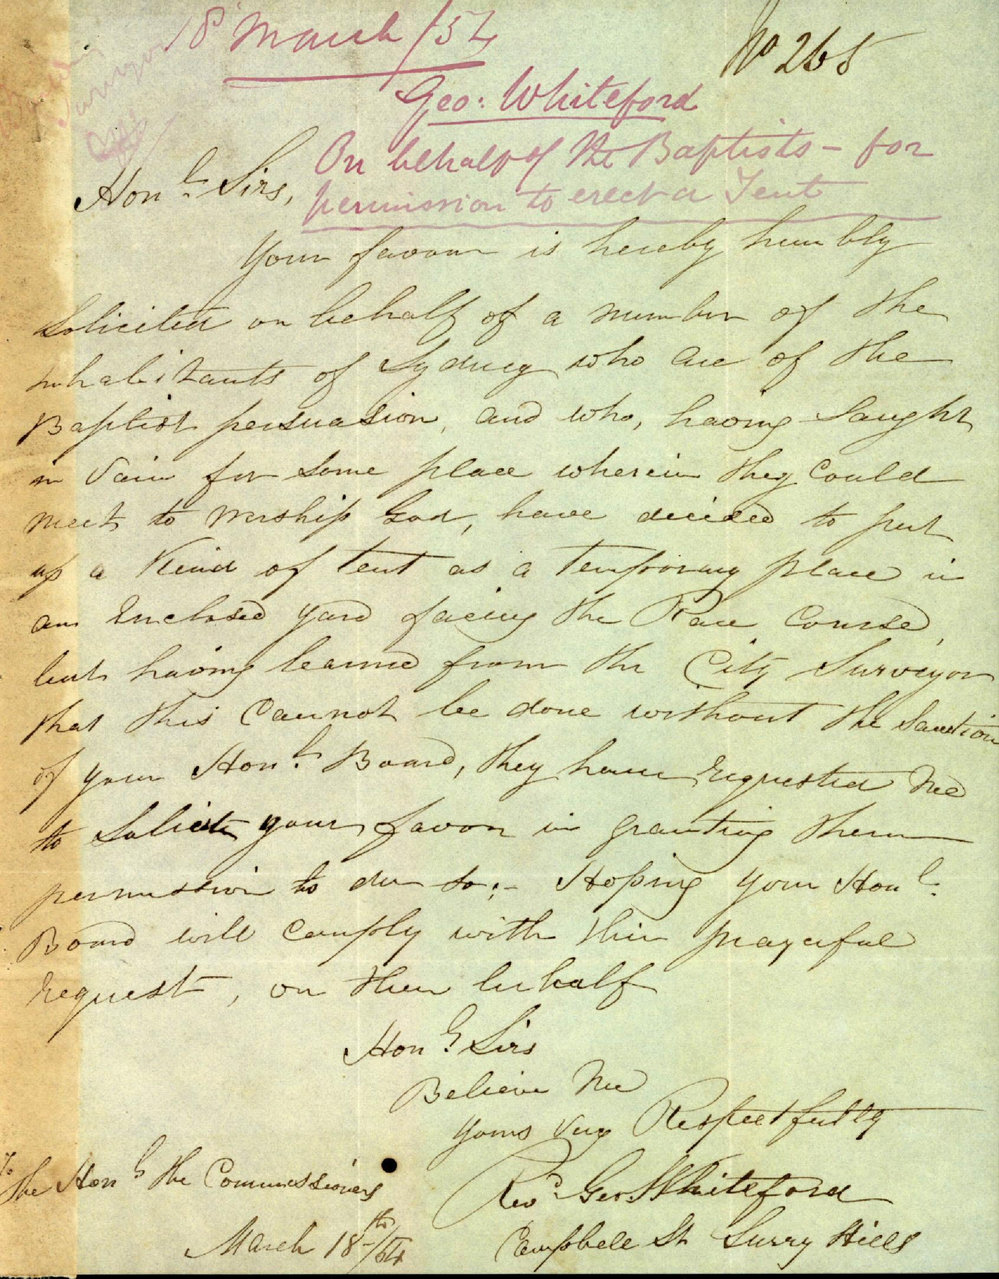 18 March/54
No 265
Geo: Whiteford
On behalf of the Baptists - for
permission to erect a Tent
Surveyor
Honble Sirs,
Your favour is hereby humbly
Solicited on behalf of a number of the
inhabitants of Sydney who are of the
Baptist persuasion, and who, having saught
in vain for some place wherein they could
meet to worship God, have decided to put
up a Kind of tent as a temporary place in
an Enclosed yard facing the Race Course,
but having learned from the City Surveyor
that this Cannot be done without the Sanction
of your Honble Board, they have requested me
to Solicit your favor in granting them
permission to du so:- Hoping your Honbl
Board will comply with this prayerful
request, on their behalf
Honble Sirs
Believe Me
yours very Respectfully
Revd Geo. Whiteford
Campbell St Surry Hills
To
The Honble the Commissioners
March 18th/54